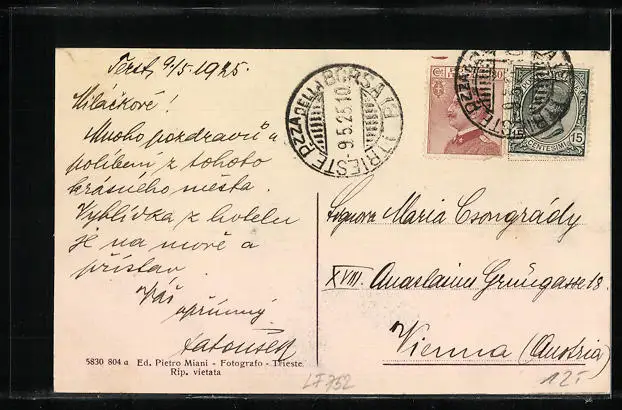 Terst, 9/5. 1925.
Miláčkové!
Mnoho pozdravů a
políbení z tohoto
krásného města.
Vyhlídka z hotelu
je na moře a
přístav.
Váš
upřímný
5830 804 a Ed. Pietro Miani - Fotografo - Trieste
Rip. vietata
TRIESTE P.ZZA DELLA BORSA
-9.5.25.10
15
CENTESIMI
Signora Maria Csongrády
XVIII. Anastasius Grüngasse 18.
Vienna (Austria)
LF752
12.-